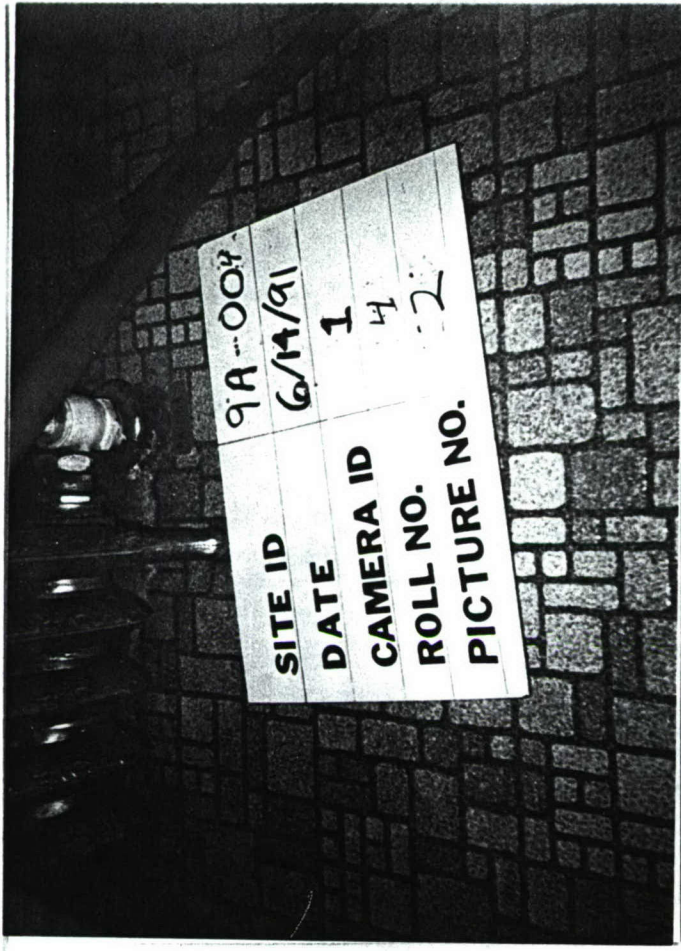 SITE ID 9A-004
DATE 6/14/91
CAMERA ID 1
ROLL NO. 4
PICTURE NO. 2